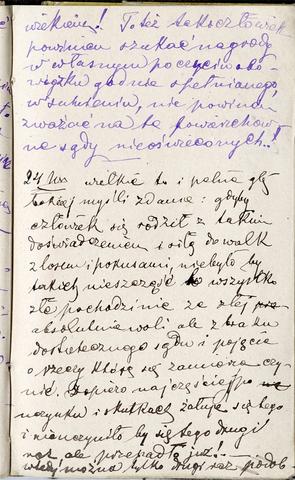 wiekiem! Toteż tak człowiek
powinien szukać nagrody
w własnym poczuciu obo
wiązku godnie spełnianego
w sumieniu, nie powinien
zważać na te powierzchow
ne sądy nieoświeconych..!
24 wielkie to i pełne głę
bokiej myśli zdanie: gdyby
człowiek się rodził z takim
doświadczeniem i siłą do walk
z losem i pokusami, nie było by
takich nieszczęść to wszystko
złe pochodzi nie ze złej
absolutnie woli ale z braku
dostatecznego sądu i pojęcia
o rzeczy którą się zamierza czy
nić. Dopiero najczęściej po
uczynku i skutkach żałuje się tego
i nie uczyniło by się tego drugi
raz, ale przepadło już!
można tylko drugi raz podob